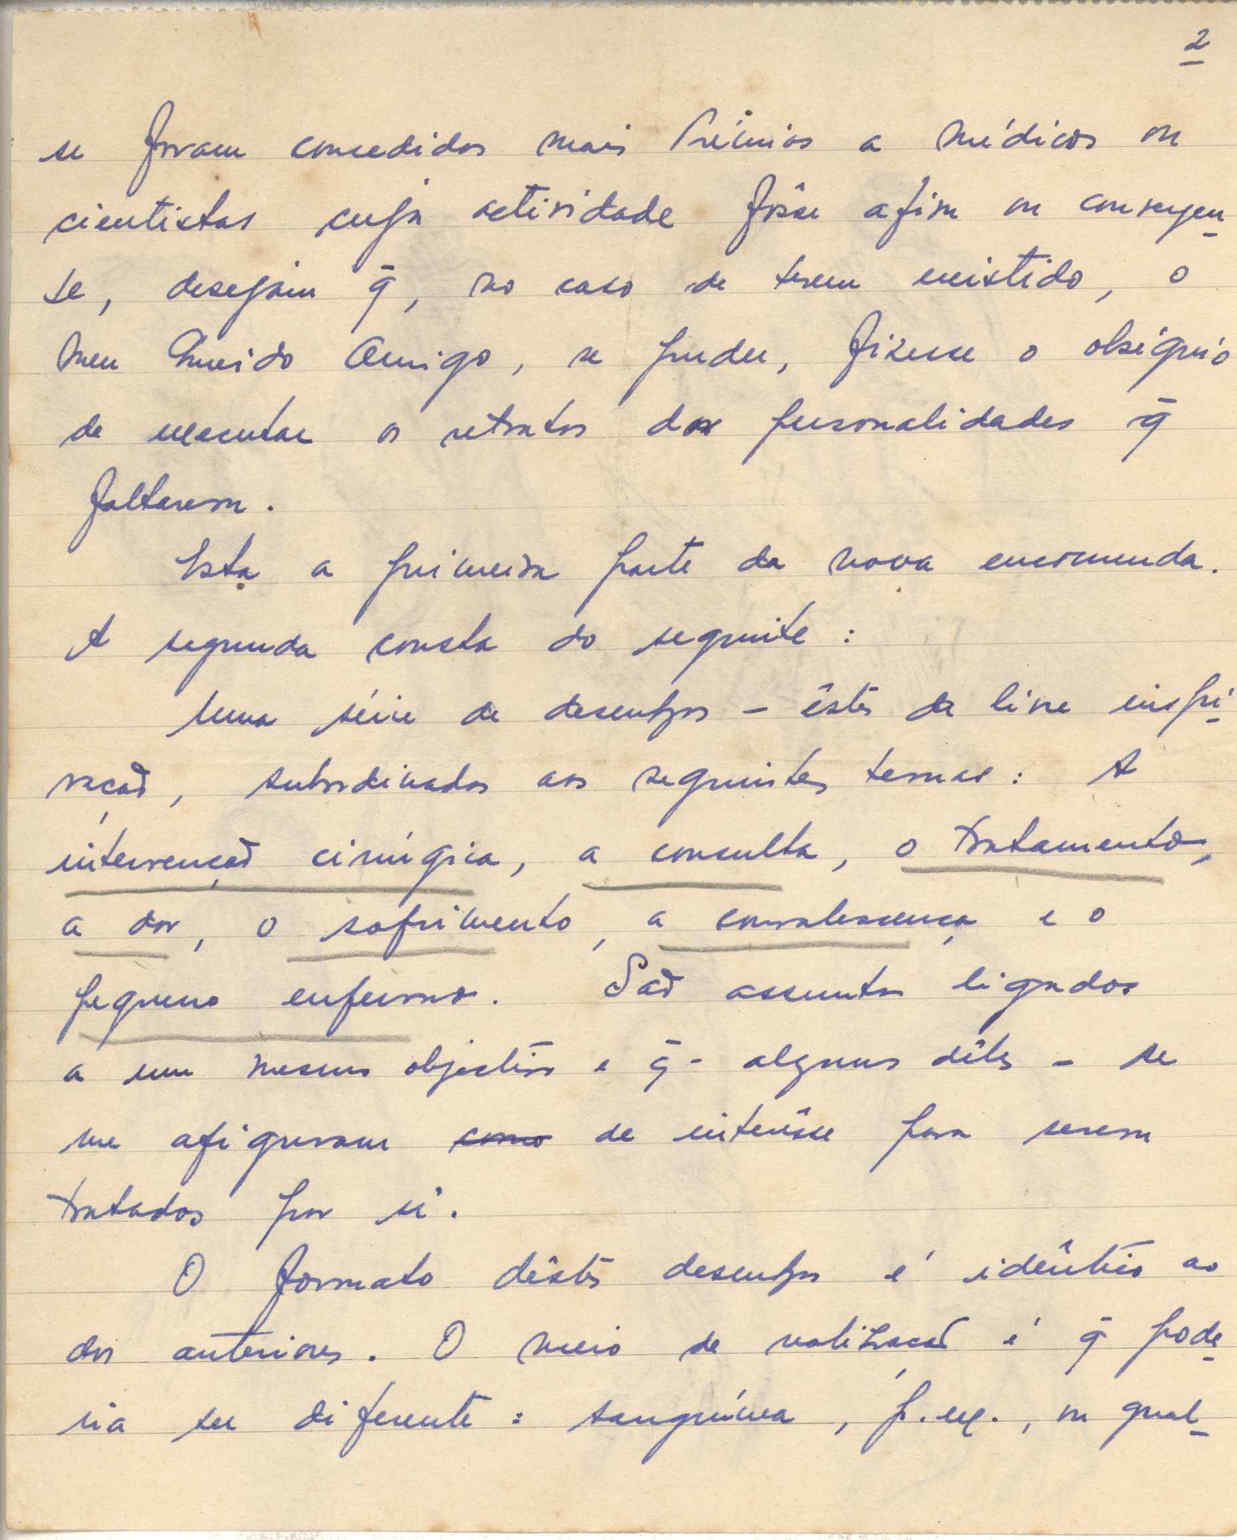 2
se foram concedidos mais Prémios a médicos ou
cientistas cuja actividade fôsse afim ou convergen-
te, desejam q̄, no caso de terem existido, o
meu Querido Amigo, se puder, fizesse o obséquio
de executar os retratos das personalidades q̄
faltarem.
Esta a primeira parte da nova encomenda.
A segunda consta do seguinte:
Uma série de desenhos – êstes de livre inspi-
ração, subordinados aos seguintes temas: A
intervenção cirúrgica, a consulta, o tratamento,
a dor, o sofrimento, a convalescença e o
pequeno enfermo. São assuntos ligados
a um mesmo objectivo e q̄ - alguns dêles – se
me afiguram como de interêsse para serem
tratados por si.
O formato dêstes desenhos é idêntico ao
dos anteriores. O meio de realização é q̄ pode-
ria ser diferente: sanguínea, p. ex., ou qual-